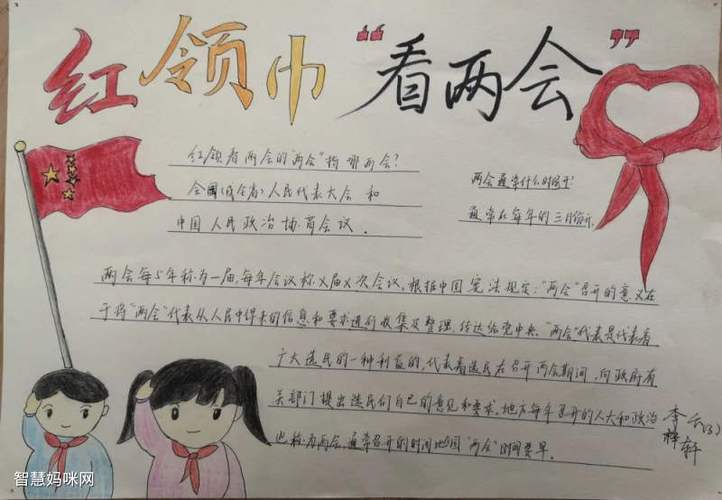 红领巾“看两会”
红领看两会的“两会”指哪两会？
全国(或全省)人民代表大会 和
中国人民政治协商会议。
两会通常什么时间开？
通常在每年的三月份开.
两会每5年称为一届,每年会议称X届X次会议,根据中国宪法规定:“两会”召开的意义在
于将“两会”代表从人民中得来的信息和要求进行收集及整理,传达给党中央.“两会”代表是代表着
广大选民的一种利益的,代表着选民在召开两会期间,向政府有
关部门提出选民们自己的意见和要求.地方每年召开的人大和政治
也称为两会,通常召开的时间比全国“两会”时间要早.
李梓轩
智慧妈咪网